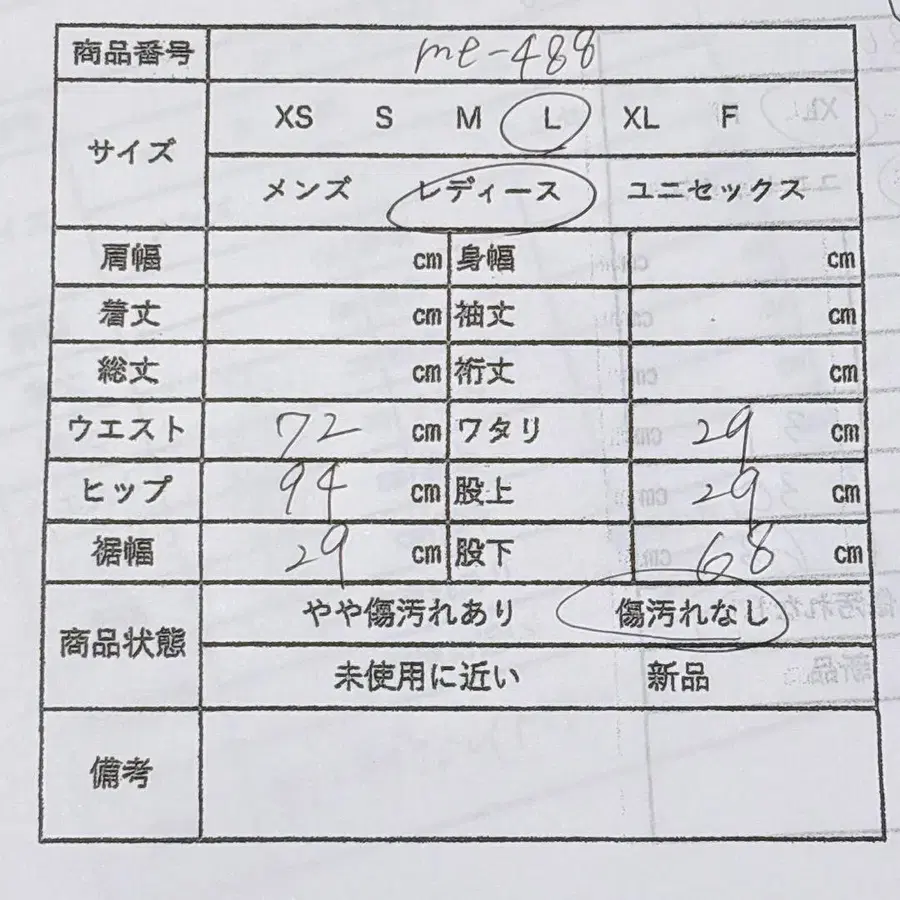 商品番号 me-488
サイズ XS S M L XL F
メンズ レディース ユニセックス
肩幅 cm 身幅 cm
着丈 cm 袖丈 cm
総丈 cm 裄丈 cm
ウエスト 72 cm ワタリ 29 cm
ヒップ 94 cm 股上 29 cm
裾幅 29 cm 股下 68 cm
商品状態 やや傷汚れあり 傷汚れなし
未使用に近い 新品
備考